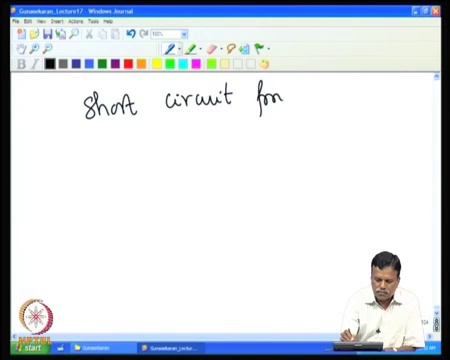 Gunasekaran_Lecture17 - Windows Journal
File Edit View Insert Actions Tools Help
100%
B I
short circuit for
start Gunasekaran Gunasekaran_Lectur...